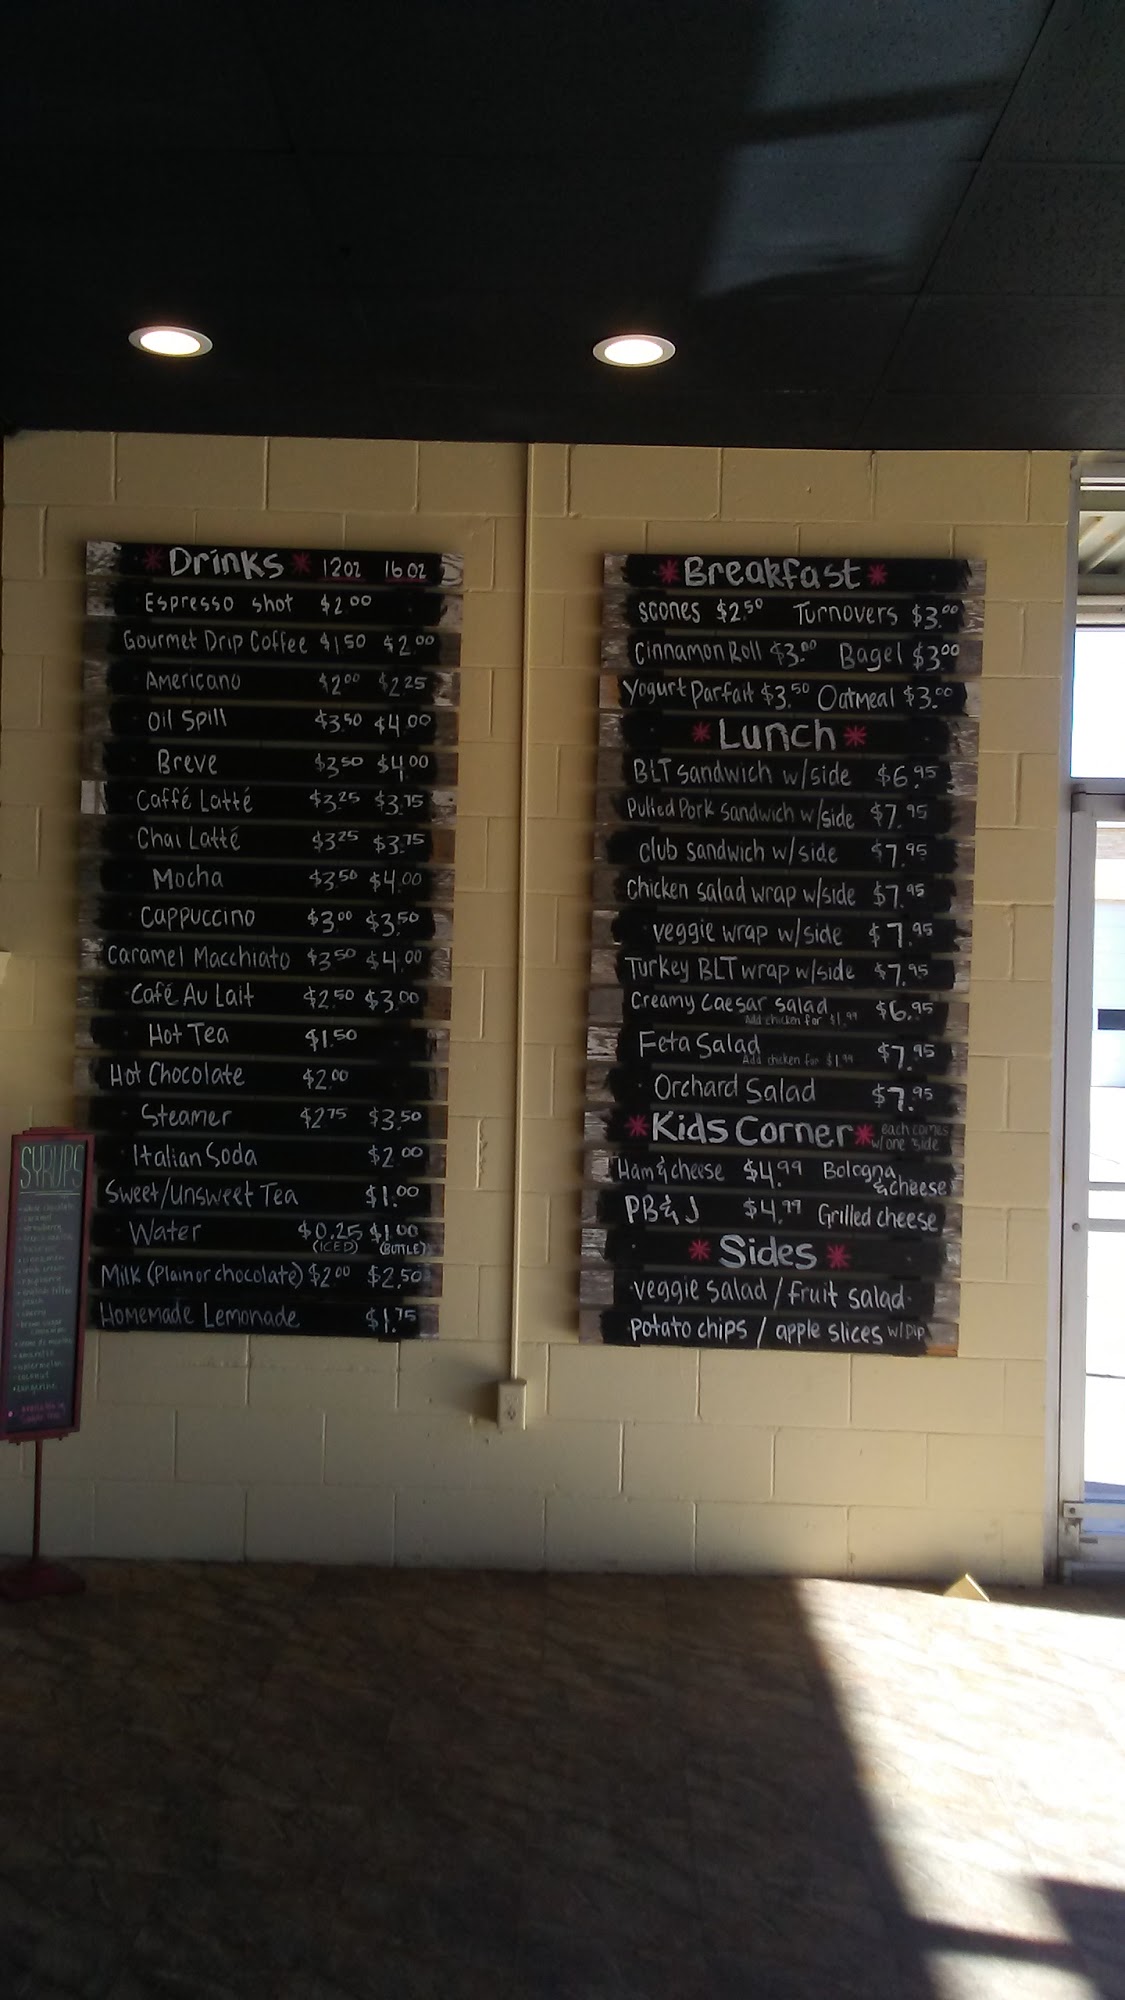 * Drinks * 12oz 16oz
Espresso shot $2.00
Gourmet Drip Coffee $1.50 $2.00
Americano $2.00 $2.25
Oil Spill $3.50 $4.00
Breve $3.50 $4.00
Caffé Latté $3.25 $3.75
Chai Latté $3.25 $3.75
Mocha $3.50 $4.00
Cappuccino $3.00 $3.50
Caramel Macchiato $3.50 $4.00
Café Au Lait $2.50 $3.00
Hot Tea $1.50
Hot Chocolate $2.00
Steamer $2.75 $3.50
Italian Soda $2.00
Sweet/Unsweet Tea $1.00
Water $0.25 $1.00
(ICED) (BOTTLE)
Milk (Plain or chocolate) $2.00 $2.50
Homemade Lemonade $1.75
* Breakfast *
Scones $2.50 Turnovers $3.00
Cinnamon Roll $3.00 Bagel $3.00
Yogurt Parfait $3.50 Oatmeal $3.00
* Lunch *
BLT sandwich w/side $6.95
Pulled Pork sandwich w/side $7.95
Club sandwich w/side $7.95
Chicken salad wrap w/side $7.95
veggie wrap w/side $7.95
Turkey BLT wrap w/side $7.95
Creamy Caesar salad $6.95
Add chicken for $1.99
Feta Salad $7.95
Add chicken for $1.99
Orchard Salad $7.95
* Kids Corner * each comes w/one side
Ham & cheese $4.99 Bologna & cheese
PB & J $4.99 Grilled cheese
* Sides *
veggie salad / fruit salad
potato chips / apple slices w/Dip
SYRUPS
caramel
watermelon
coconut
tangerine